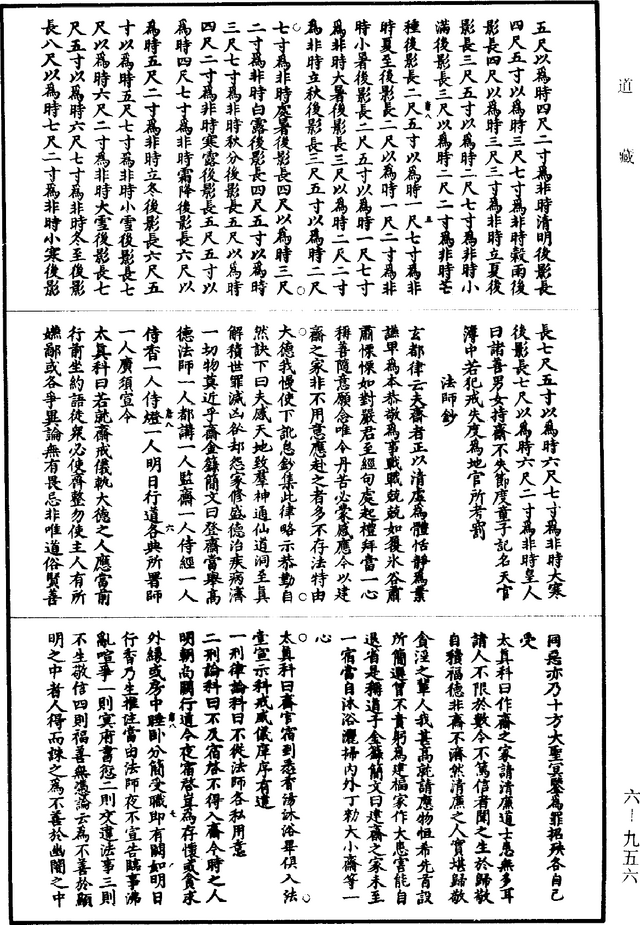 道藏
五尺以為時四尺二寸為非時清明後影長
四尺五寸以為時三尺七寸為非時穀雨後
影長四尺以為時三尺三寸為非時立夏後
影長三尺五寸以為時二尺七寸為非時小
滿後影長三尺以為時二尺二寸為非時芒
種後影長二尺五寸以為時一尺七寸為非
時夏至後影長二尺以為時一尺二寸為非
時小暑後影長二尺五寸以為時一尺七寸
為非時大暑後影長三尺以為時二尺二寸
為非時立秋後影長三尺五寸以為時二尺
七寸為非時處暑後影長四尺以為時三尺
二寸為非時白露後影長四尺五寸以為時
三尺七寸為非時秋分後影長五尺以為時
四尺二寸為非時寒露後影長五尺五寸以
為時四尺七寸為非時霜降後影長六尺以
為時五尺二寸為非時立冬後影長六尺五
寸以為時五尺七寸為非時小雪後影長七
尺以為時六尺二寸為非時大雪後影長七
尺五寸以為時六尺七寸為非時冬至後影
長八尺以為時七尺二寸為非時小寒後影
長七尺五寸以為時六尺七寸為非時大寒
後影長七尺以為時六尺二寸為非時皇人
曰諸善男女持齋不失節度童子記名天官
簿中若犯戒失度為地官所考罰
法師鈔
玄都律云夫齋者正以清虛為體恬靜為業
謙卑為本恭敬為事戰戰兢兢如履冰谷肅
肅慄慄如對嚴君至經句處起禮拜當一心
稱善隨意願念唯令丹苦必蒙感應今以建
齋之家非不用意應赴之者多不存法特由
大德我慢使下訛怠鈔集此律略示恭勤自
然訣下曰夫感天地致群神通仙道洞至真
解積世罪滅凶咎却怨家修盛德治疾病濟
一切物莫近乎齋金籙簡文曰登齋當舉高
德法師一人都講一人監齋一人侍經一人
侍香一人侍燈一人明日行道各典所署師
一人廣須宣令
太真科曰若就齋戒儀軌大德之人應當前
行前坐約語徒眾必使齊整勿使主人有所
嫌鄙或各爭異論無有畏忌非唯道俗賢善
同惡亦乃十方大聖冥鑒為罪招殃各自己
受
太真科曰作齋之家請清廉道士患無多耳
請人不限於數令不篤信者聞之生於歸敬
自積福德非齋不濟然清廉之人實堪歸敬
貪淫之輩人我甚高就請應物恒希先首設
所簡選曾不責躬為建福家作大患害能自
退省是稱道子金籙簡文曰建齋之家未至
一宿當自沐浴灑掃內外丁勑大小齋等一
心
太真科曰齋官宿到悉香湯沐浴畢俱入法
堂宣示科戒威儀庠序有違
一刑律論科曰不從法師各私用意
二刑論科曰不及宿啓不得入齋今時之人
明朝尚闕行道今夜宿啓豈為存懷或貪求
外緣或房中睡臥分簡受職即有闕如明日
行香乃生推注當由法師夜不宣告臨事沸
亂喧爭一則冥府書愆二則交違法事三則
不生敬信四則福善無憑論云為不善於顯
明之中者人得而誅之為不善於幽闇之中
六－九五六